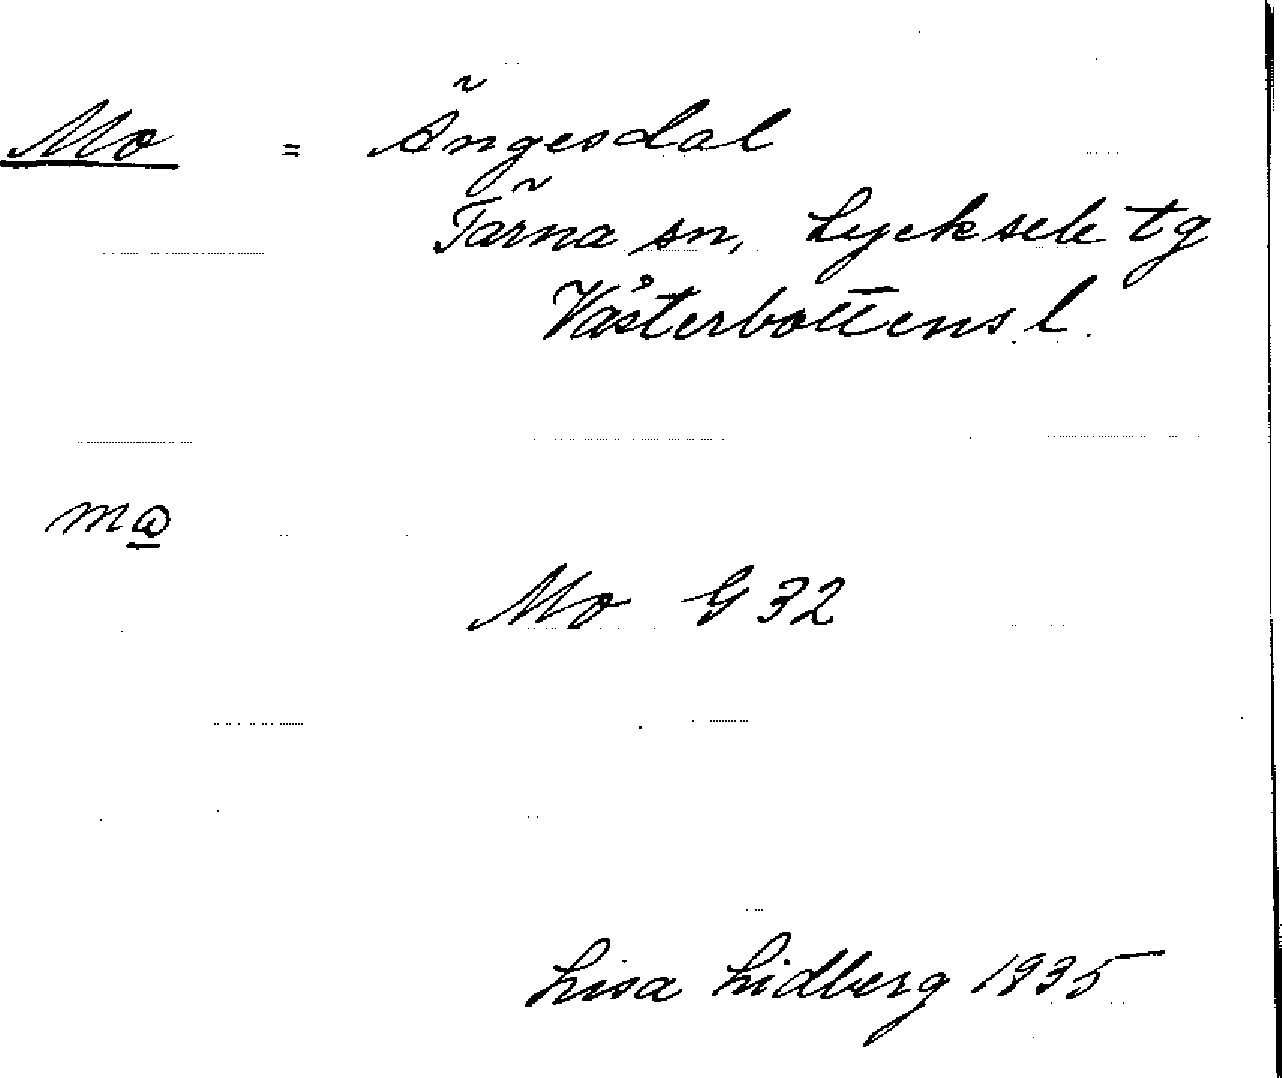 Mo = Ängesdal
Tärna sn, Lycksele tg
Västerbottens l.
Mo G 32
Lisa Lidberg 1935